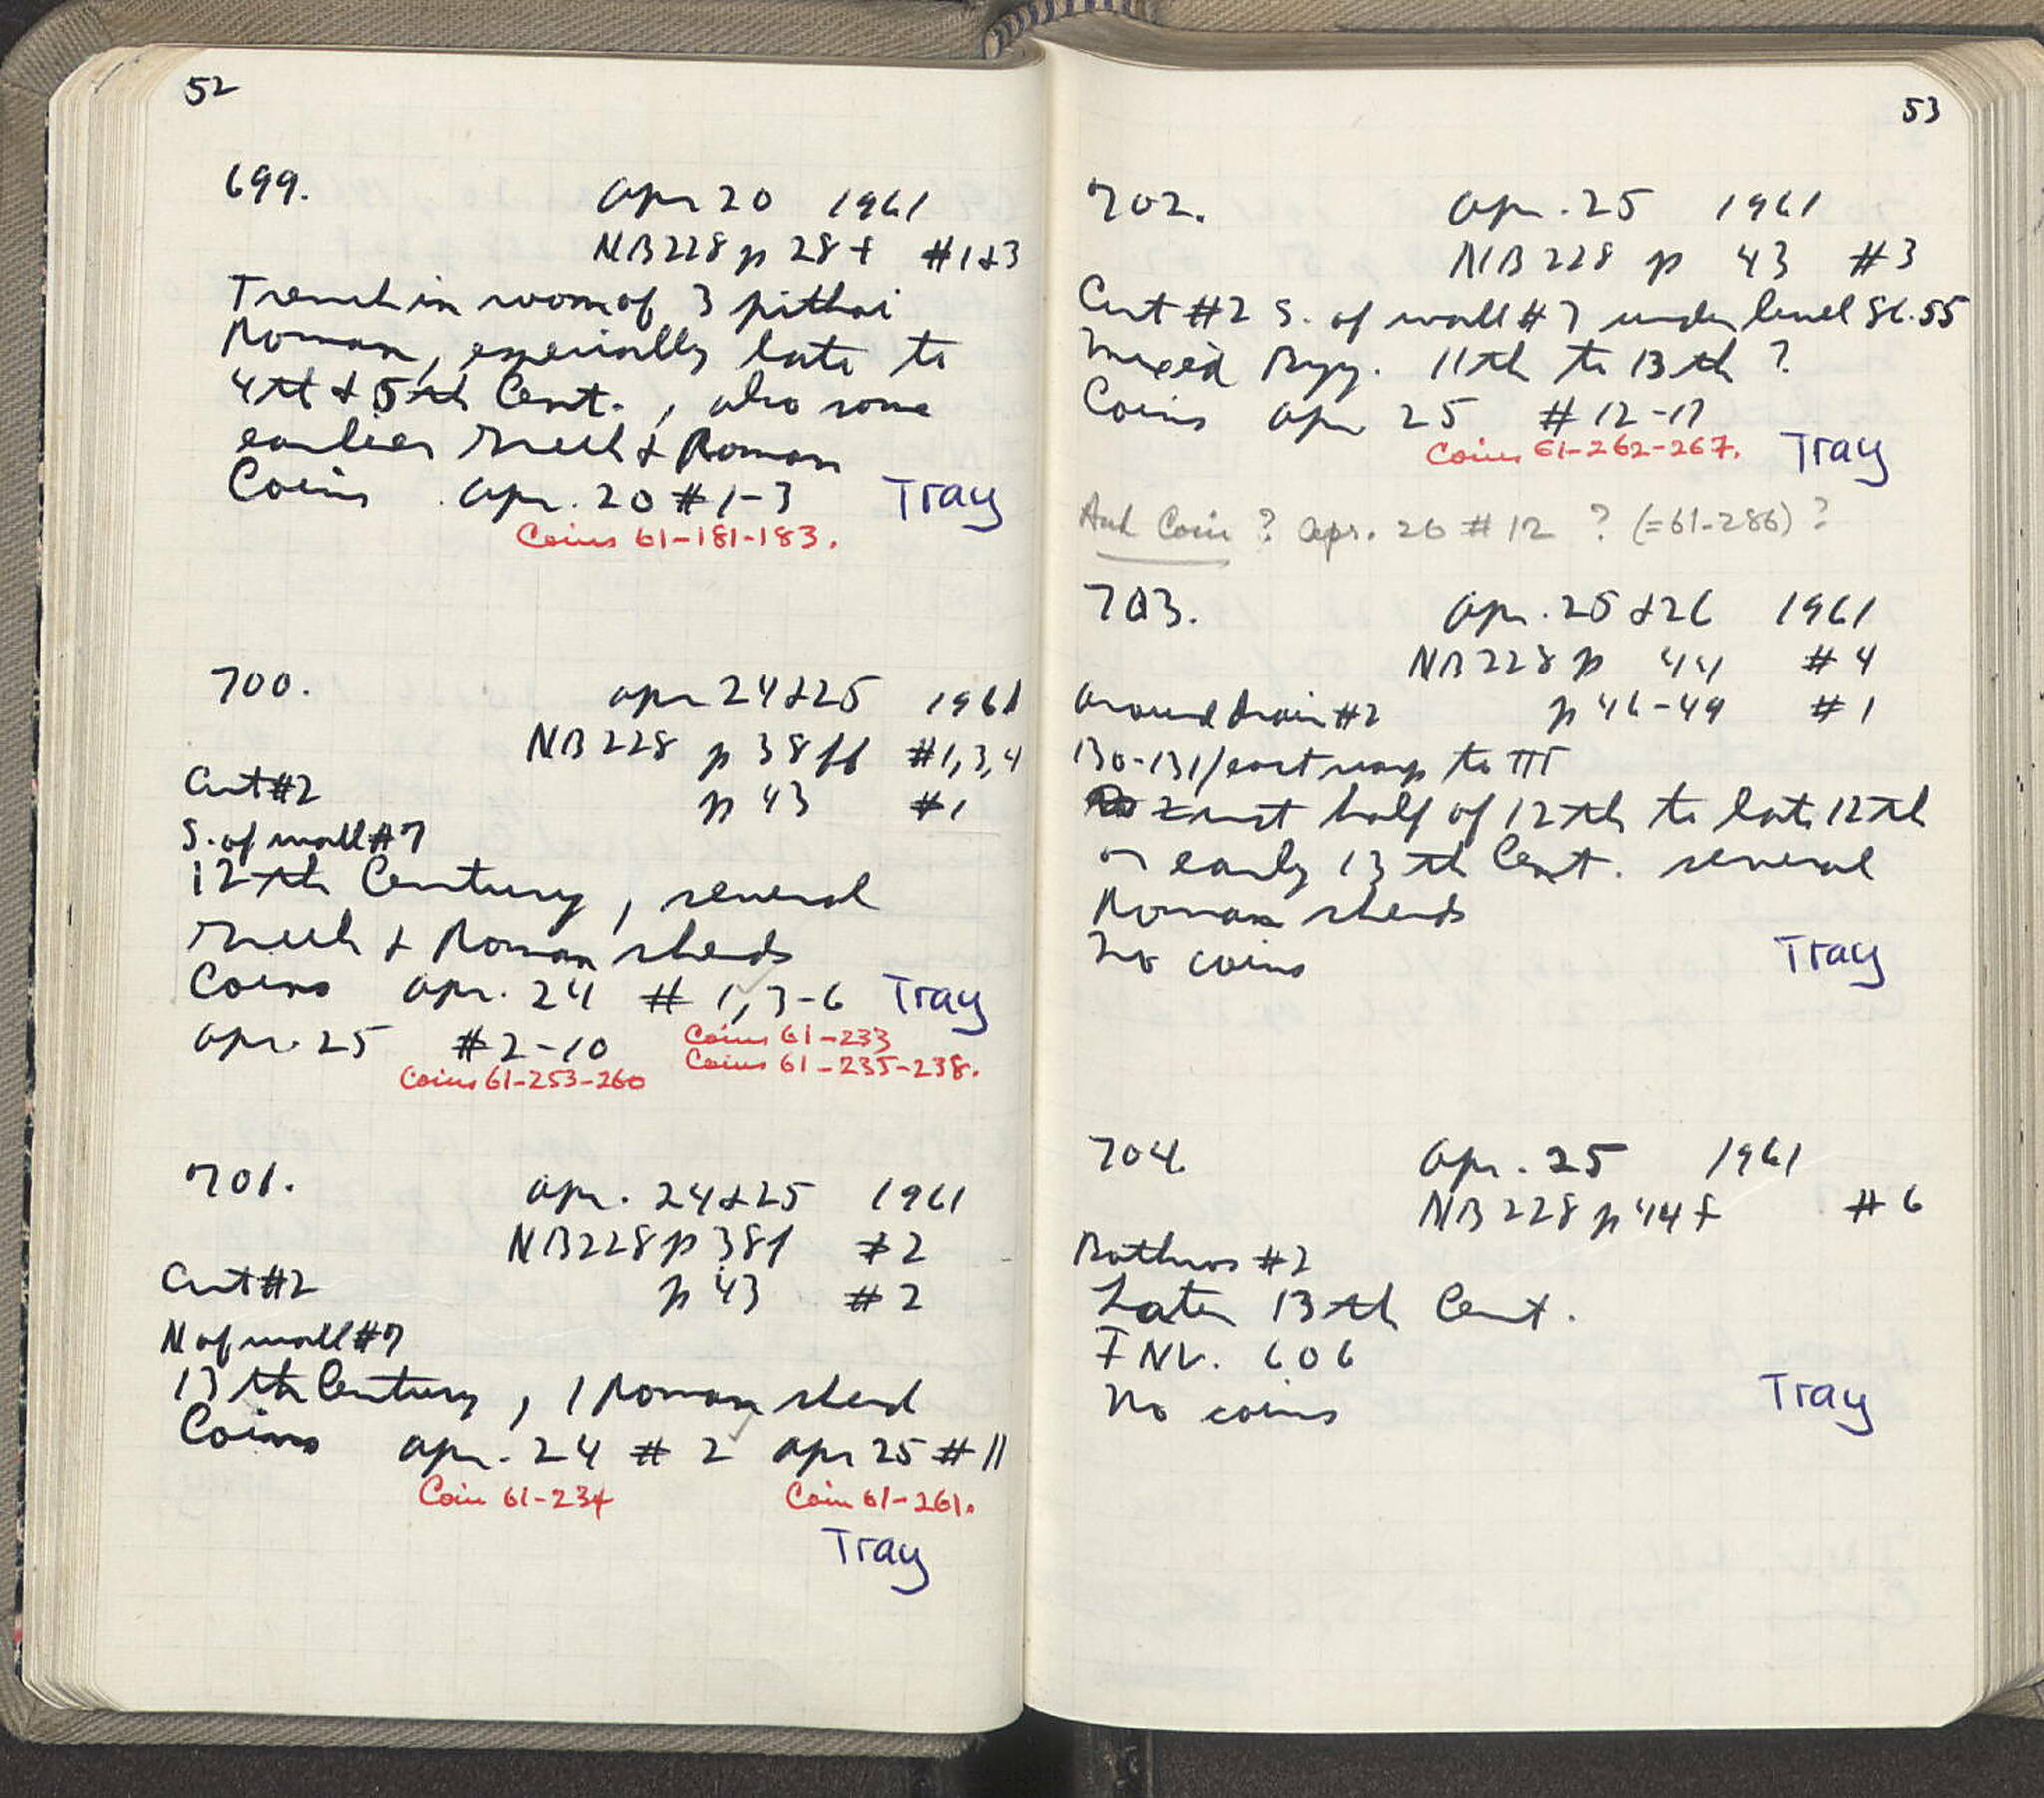 52
699.
Apr 20 1961
NB228 p 28 f #1&3
Trench in room of 3 pithoi
Roman, especially late to
4th & 5th Cent., also some
earlier Greek & Roman
Coins Apr. 20 #1-3 Tray
Coins 61-181-183.
700.
Apr 24&25 1961
NB 228 p 38ff #1,3,4
Cut #2 p 43 #1
S. of wall #7
12th Century, several
Greek & Roman sherds
Coins Apr. 24 # 1, 3-6 Tray
Coins 61-233
Apr. 25 #2-10
Coins 61-235-238.
Coins 61-253-260
701.
Apr. 24&25 1961
NB228 p 38f #2
Cut #2 p 43 #2
N of wall #7
13th Century, 1 Roman sherd
Coins Apr. 24 # 2 Apr 25 # 11
Coin 61-234 Coin 61-261.
Tray
53
702.
Apr. 25 1961
NB 228 p 43 #3
Cut #2 S. of wall #7 under level 86.55
Mixed Byz. 11th to 13th ?
Coins Apr 25 # 12-17
Coins 61-262-267. Tray
Coin ? Apr. 26 # 12 ? (=61-286) ?
703.
Apr. 25 & 26 1961
NB 228 p 44 # 4
Around drain #2 p 46-49 # 1
130-131/east
half of 12th to late 12th
or early 13th Cent. several
Roman sherds
No coins Tray
704.
Apr. 25 1961
NB 228 p 44 f # 6
Bothros #2
Later 13th Cent.
INV. 606
No coins Tray